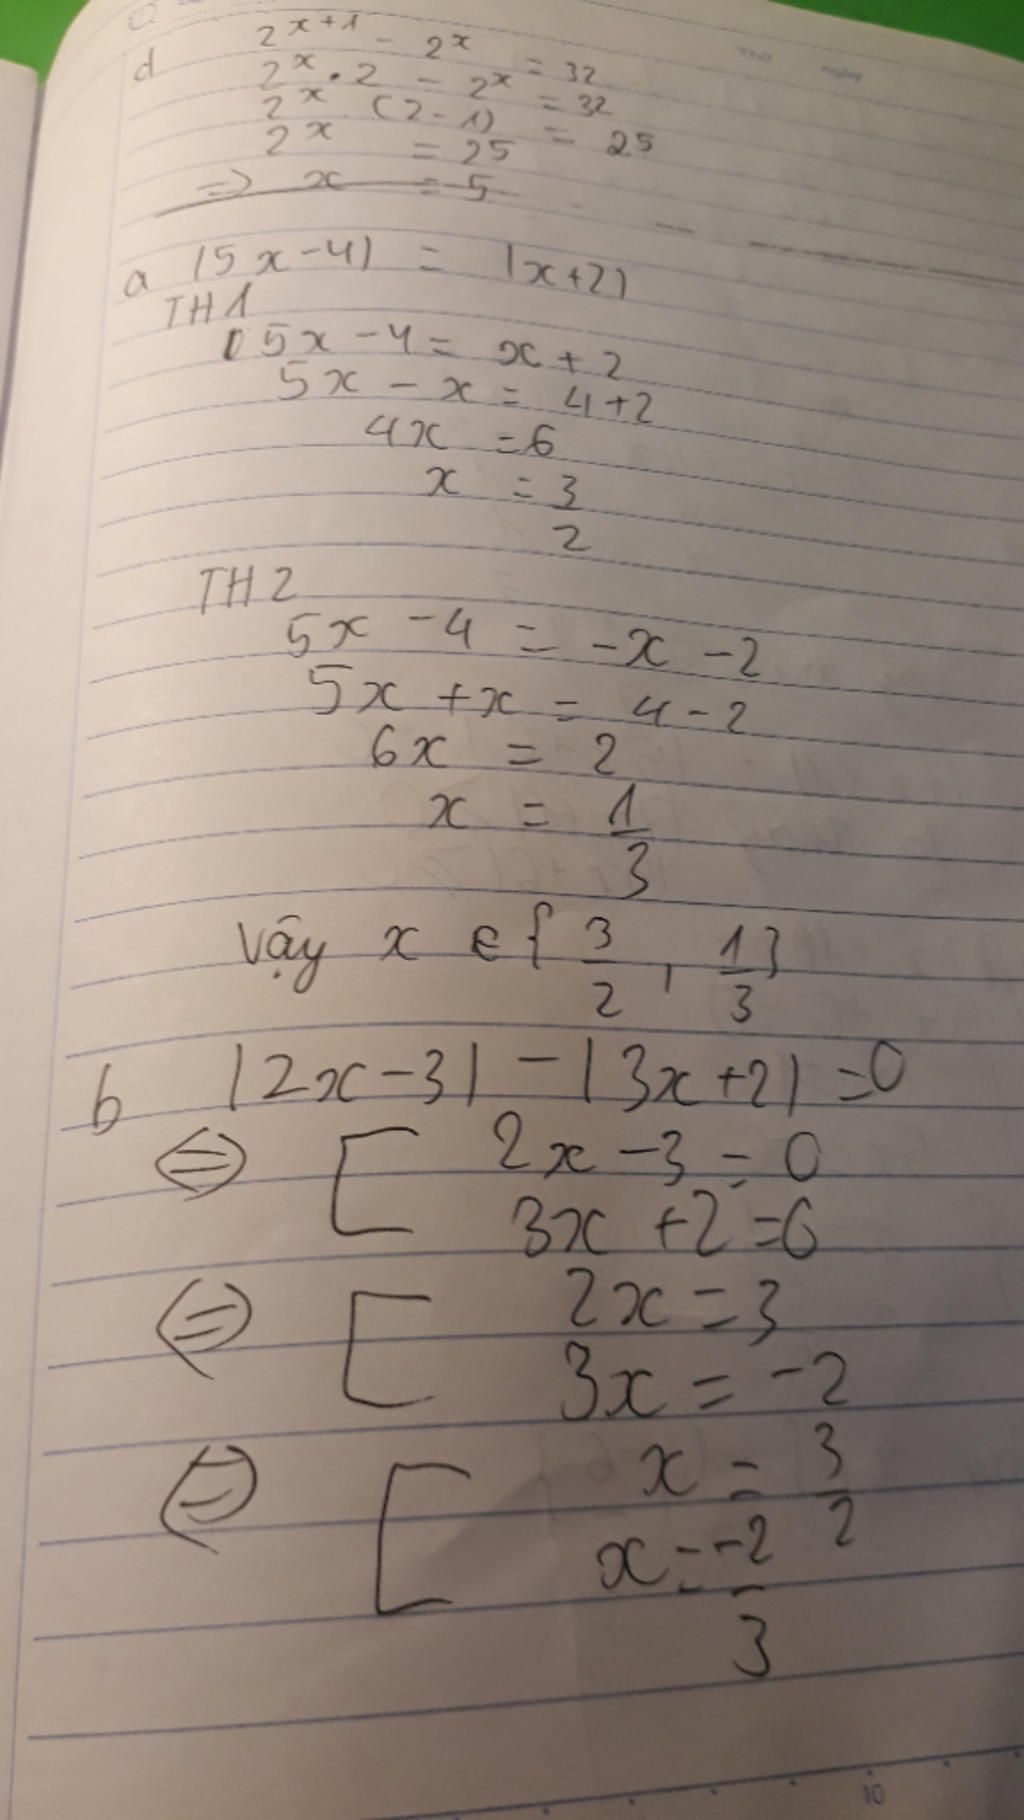 d 2^{x+1} - 2^x = 32
2^x . 2 - 2^x = 32
2^x (2-1) = 25
2^x = 25
=> x = 5
a |5x-4| = |x+2|
TH1
5x - 4 = x + 2
5x - x = 4+2
4x = 6
x = 3/2
TH2
5x - 4 = -x - 2
5x + x = 4 - 2
6x = 2
x = 1/3
Vậy x ∈ { 3/2 , 1/3 }
b |2x-3| - |3x+2| = 0
⇔ [ 2x - 3 = 0
3x + 2 = 0
⇔ [ 2x = 3
3x = -2
⇔ [ x = 3/2
x = -2/3
10